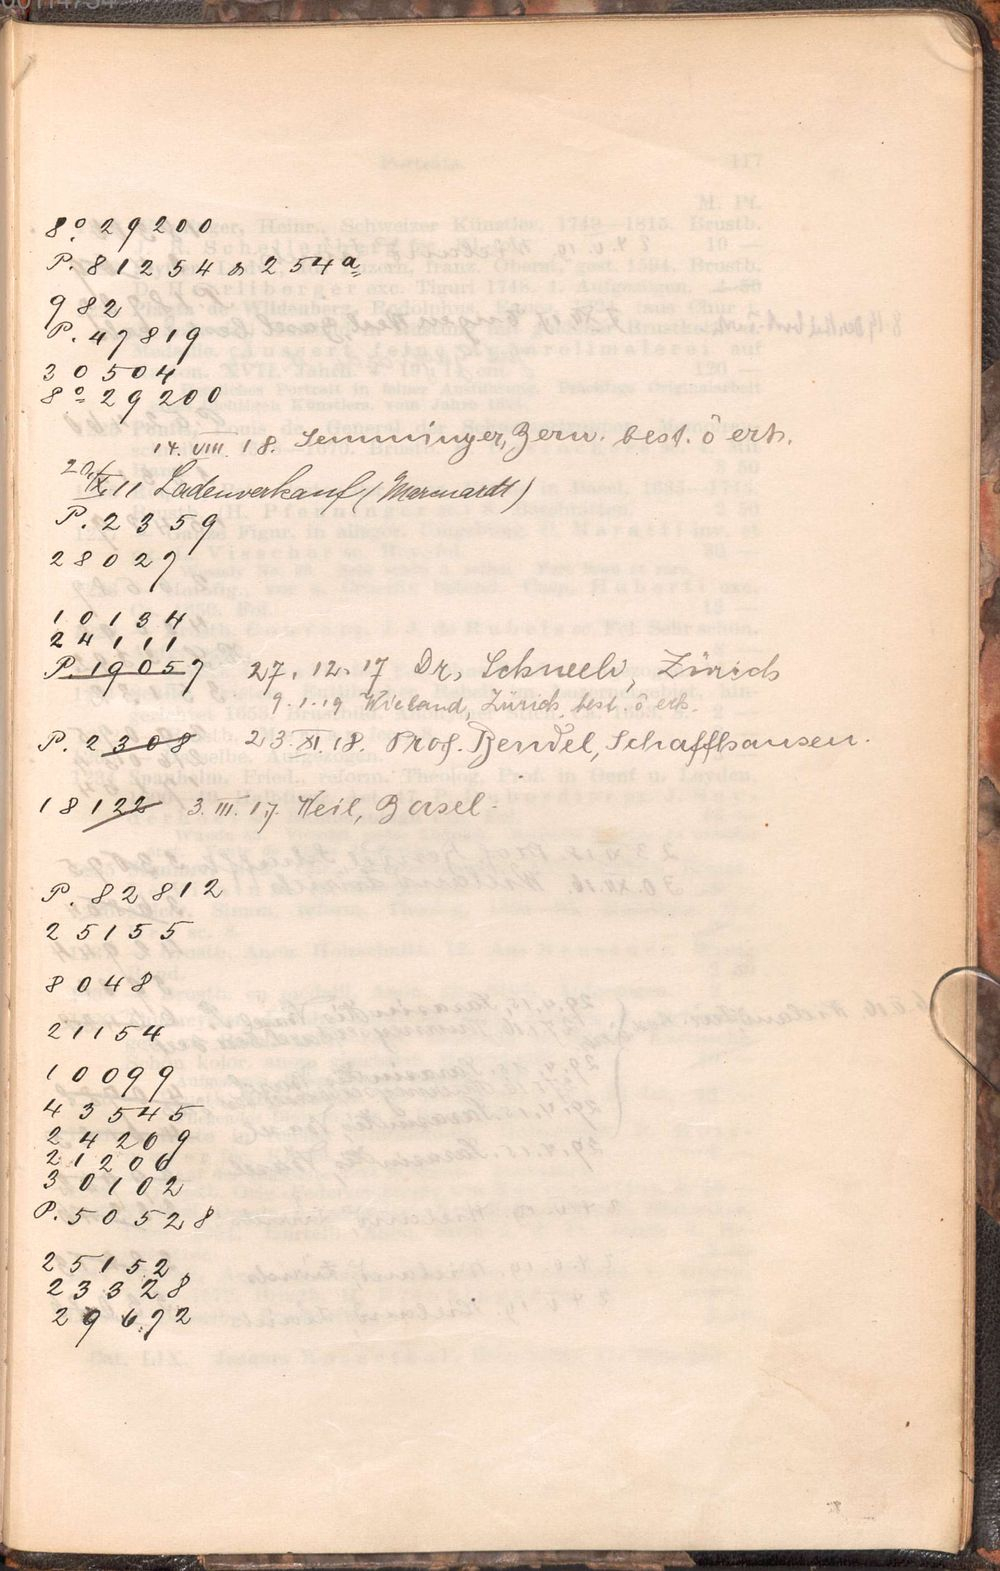 8º 29200
P. 81254 & 254a
982
P. 47819
30504
8º 29200
14. VIII. 18. Semminger, Bern. best. ō erh.
20/IX. 11 Ladenverkauf (Marquardt)
P. 2359
28027
10134
24111
P. 19057 27. 12. 17 Dr. Schneeli, Zürich
9. 1. 19 Wieland, Zürich best. ō erh.
P. 2308 23. XI. 18. Prof. Bendel, Schaffhausen.
18122 3. III. 17. Weil, Basel.
P. 82812
25155
8048
21154
10099
43545
24209
21206
30102
P. 50528
25152
23328
29672